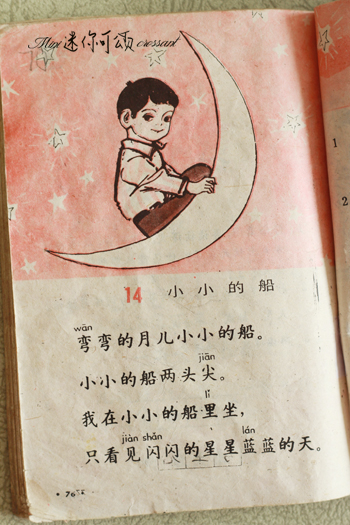 Mini 迷你可颂 crossant
14 小小的船
wān
弯弯的月儿小小的船。
jiān
小小的船两头尖。
lǐ
我在小小的船里坐，
jiàn shǎn lán
只看见闪闪的星星蓝蓝的天。
76
1
2